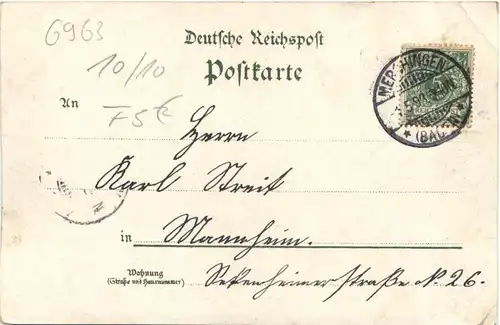 G963
Deutsche Reichspost
Postkarte
10/10
An
Herrn
Karl Streit
in Mannheim.
Wohnung
(Straße und Hausnummer)
Seckenheimerstraße No 26.
(BADEN)